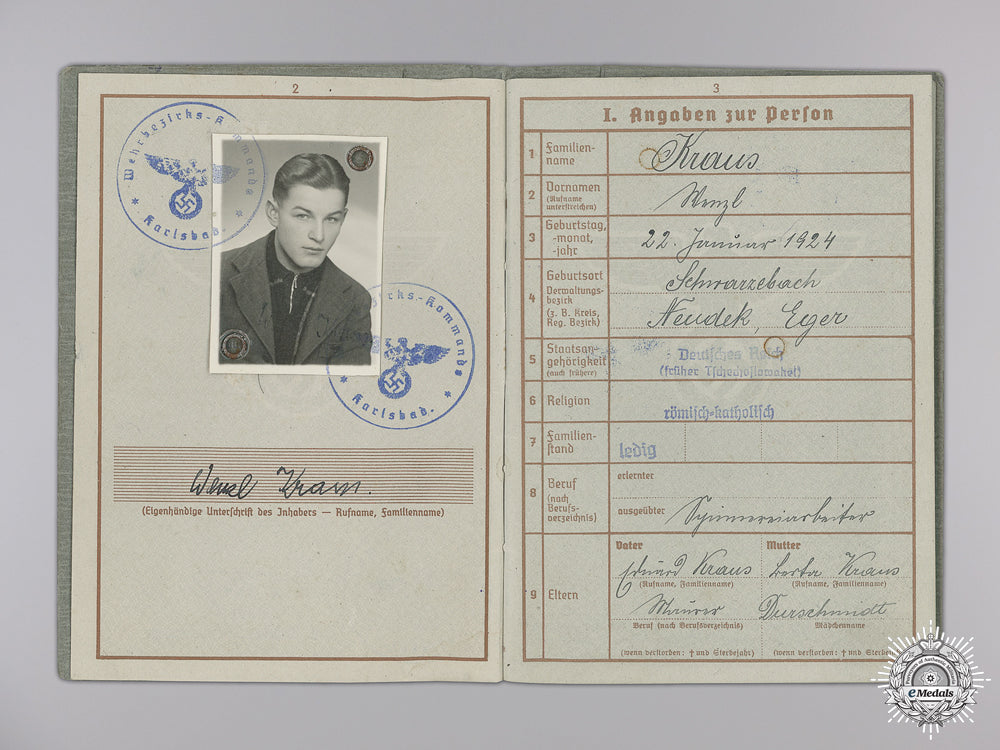 2
Wehrbezirks-Kommando
Karlsbad.
Wehrbezirks-Kommando
Karlsbad.
Wenzl Kraus.
(Eigenhändige Unterschrift des Inhabers — Rufname, Familienname)
3
I. Angaben zur Person
1 Familien-
name
Kraus
2 Vornamen
(Rufname
unterstreichen)
Wenzl
3 Geburtstag,
-monat,
-jahr
22. Januar 1924
4 Geburtsort
Verwaltungs-
bezirk
(z. B. Kreis,
Reg. Bezirk)
Schwarzebach
Neudek, Eger
5 Staatsan-
gehörigkeit
(auch frühere)
Deutsches Reich
(früher Tschechoslowakei)
6 Religion
römisch-katholisch
7 Familien-
stand
ledig
8 Beruf
(nach
Berufs-
verzeichnis)
erlernter
ausgeübter
Spinnereiarbeiter
9 Eltern
Vater
Mutter
Eduard Kraus
Berta Kraus
(Rufname, Familienname)
(Rufname, Familienname)
Maurer
Durschmidt
Beruf (nach Berufsverzeichnis)
Mädchenname
(wenn verstorben: † und Sterbejahr)
(wenn verstorben: † und Sterbe
eMedals